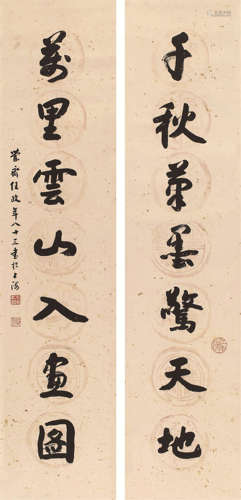 千秋筆墨驚天地
萬里雲山入畫圖
蘭齋任政年八十三書於上海